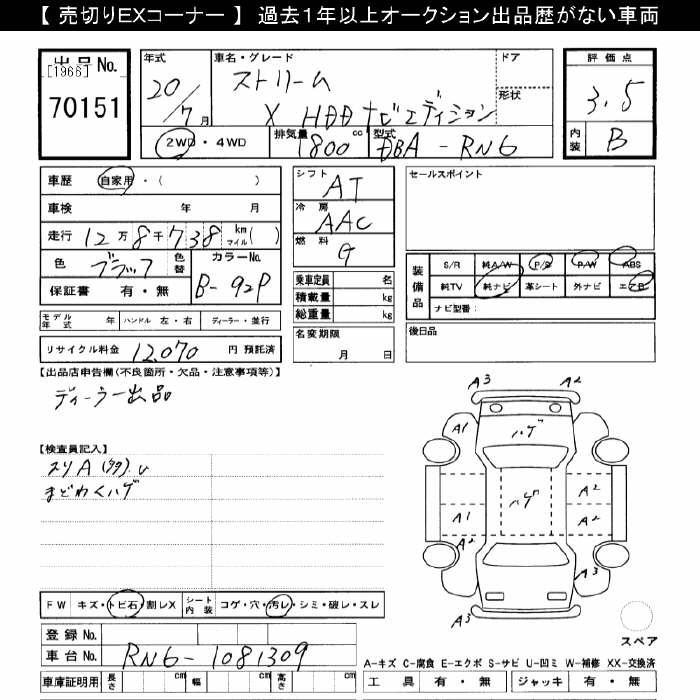 【 売切りEXコーナー 】 過去1年以上オークション出品歴がない車両
出品No.
[1966]
70151
年式
20/7月
車名・グレード
ストリーム
X HDDナビエディション
ドア
形状
2WD・4WD
排気量 1800 cc
型式 DBA-RN6
評価点
3.5
内装 B
車歴 自家用・( )
車検 年 月
走行 12万8千738 km マイル( )
色 ブラック 色替
カラーNo. B-92P
保証書 有・無
モデル年式 年 ハンドル 左・右 ディーラー・並行
リサイクル料金 12,070 円 預託済
シフト AT
冷房 AAC
燃料 G
乗車定員 名
積載量 kg
総重量 kg
名変期限
月 日
セールスポイント
装備品
S/R 純A/W P/S P/W ABS
純TV 純ナビ 革シート 外ナビ エアB
ナビ型番:
後日品
【出品店申告欄(不良箇所・欠品・注意事項等)】
ディーラー出品
【検査員記入】
スリA(タタ).U
まどわくハゲ
A3 A2
A1 ハゲ
ハゲ A2
A1 A2
A2
A3
A3
スペア
FW キズ・トビ石・割レX
シート内装 コゲ・穴・汚レ・シミ・破レ・スレ
登録No.
車台No. RN6-1081309
車庫証明用 長さ cm 幅 cm 高さ cm
A-キズ C-腐食 E-エクボ S-サビ U-凹ミ W-補修 XX-交換済
工具 有・無 ジャッキ 有・無